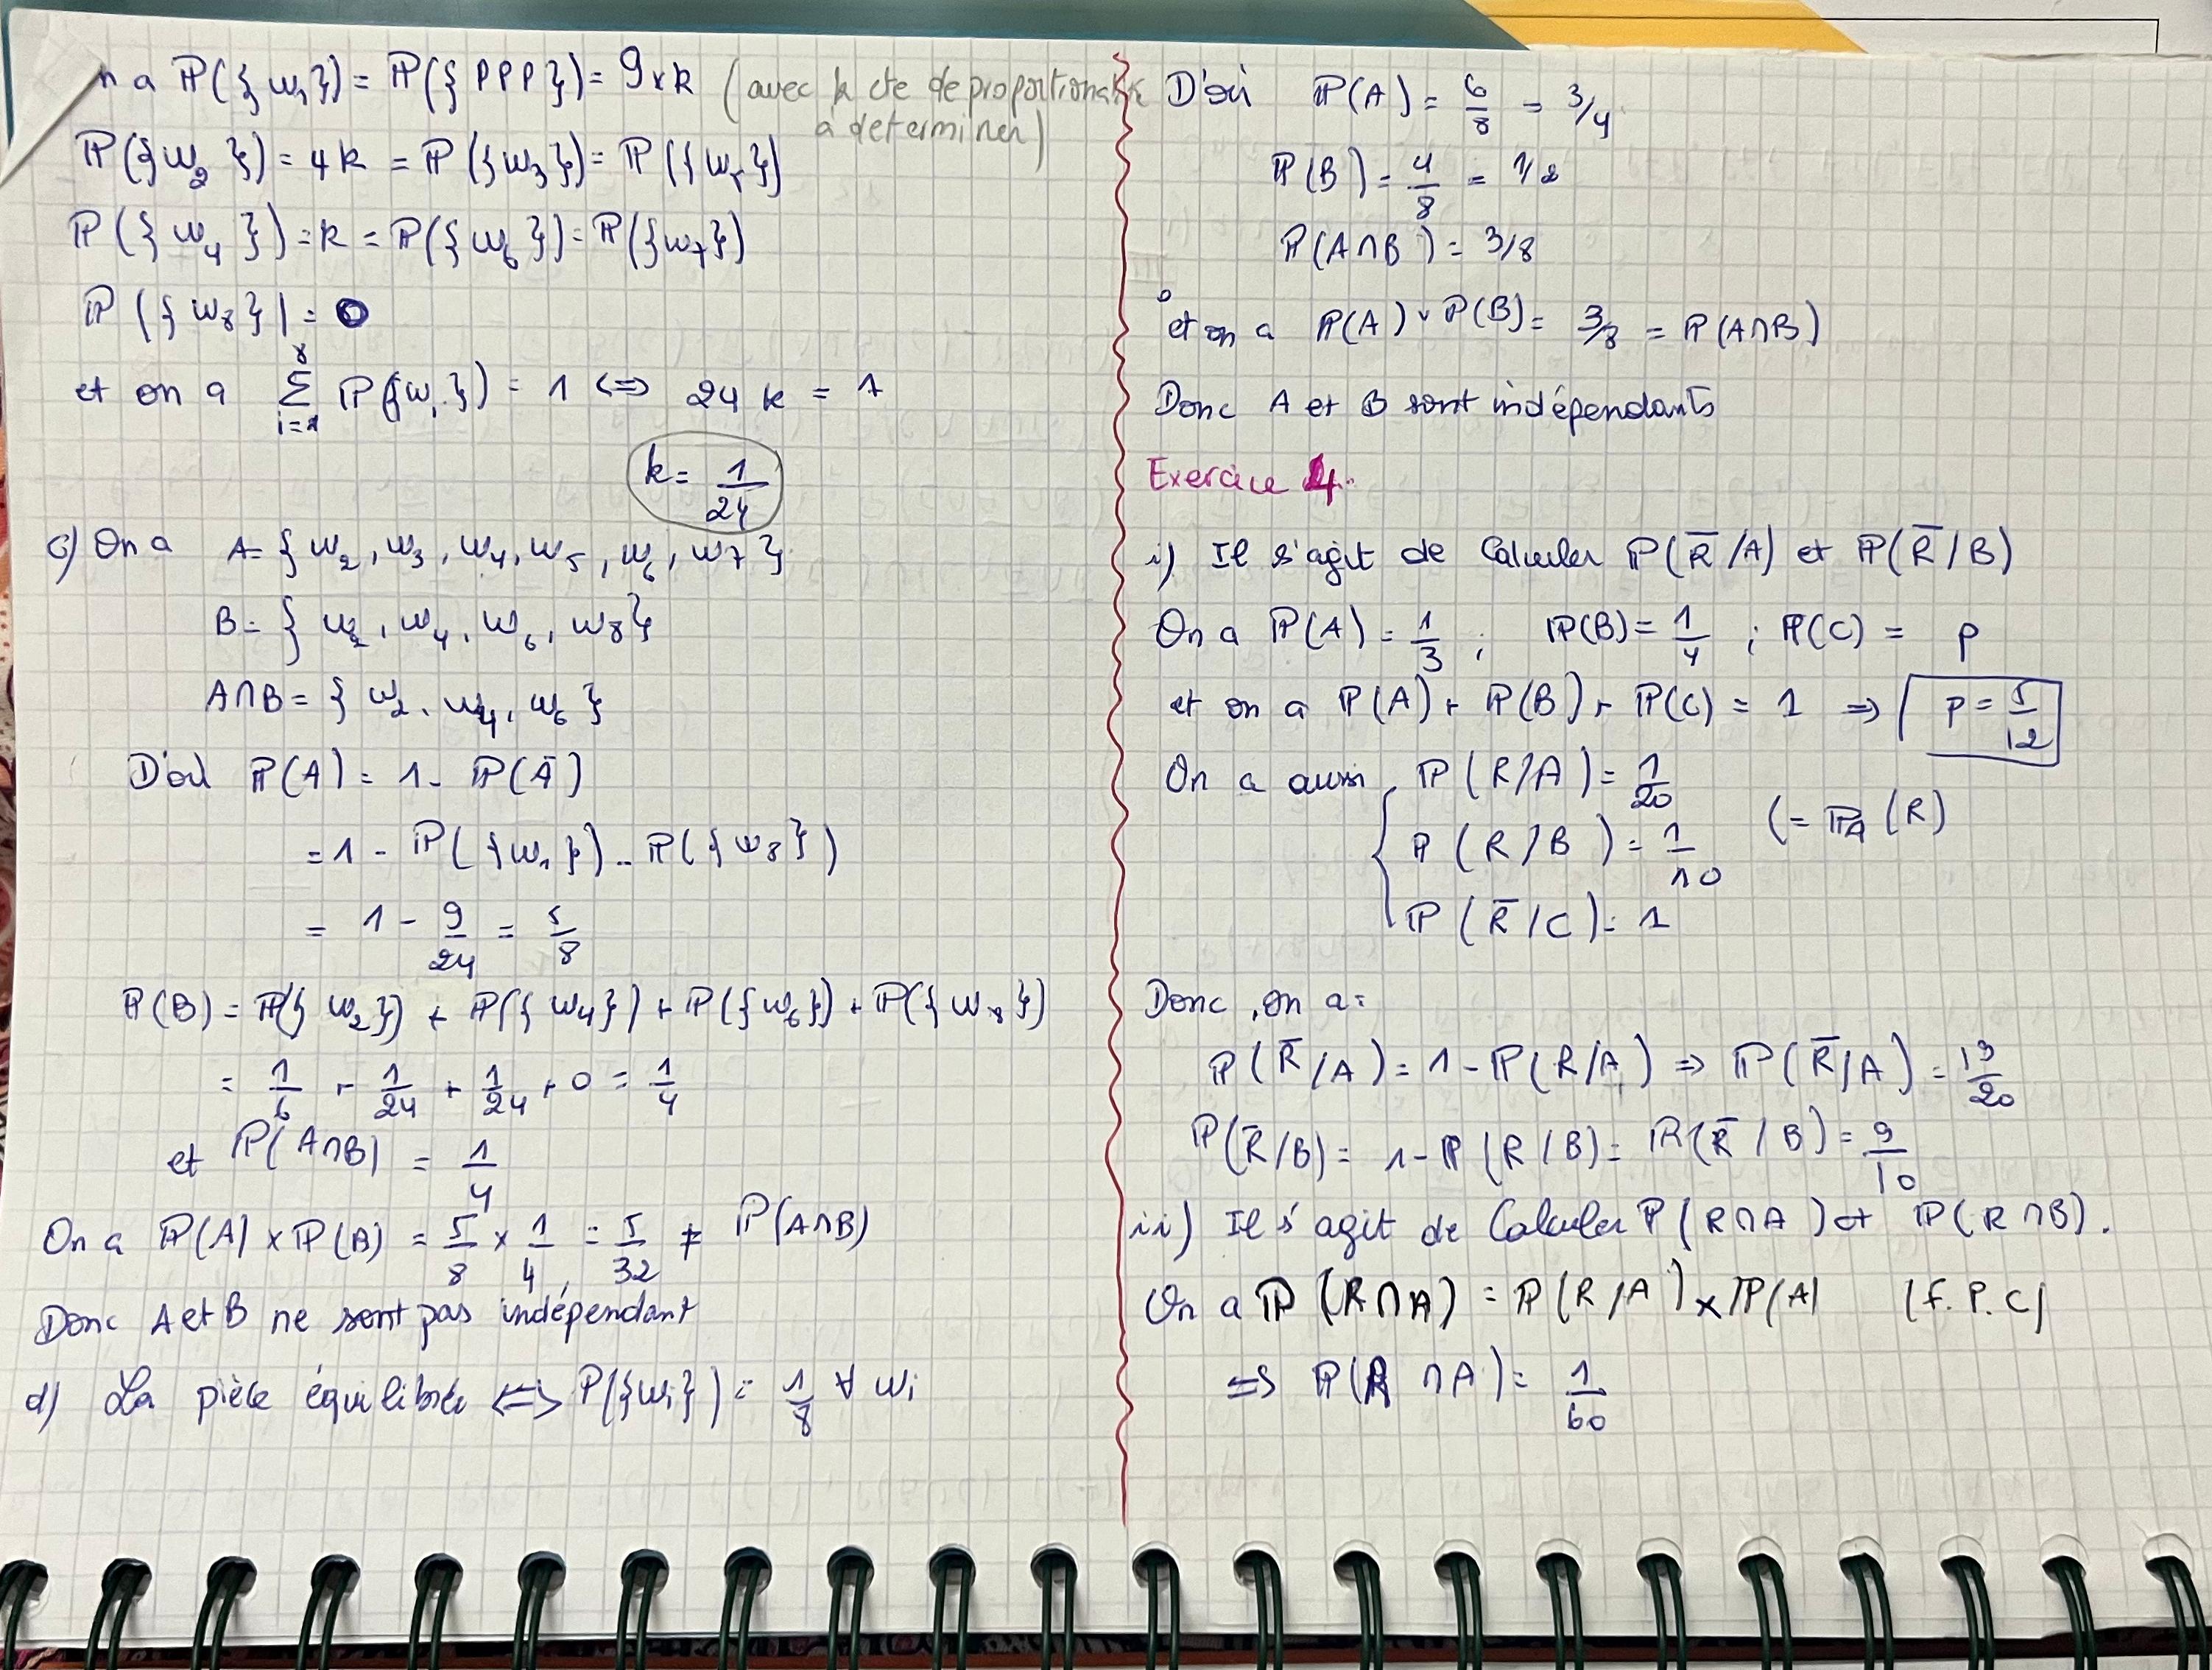 n a ℙ({w₁}) = ℙ({PPP}) = 9×k (avec k cte de proportionalité
à determiner)
ℙ({w₂}) = 4k = ℙ({w₃}) = ℙ({w₅})
ℙ({w₄}) = k = ℙ({w₆}) = ℙ({w₇})
ℙ({w₈}) = 0
et on a Σ_{i=1}^{8} ℙ({wᵢ}) = 1 ⟺ 24k = 1
k = 1/24
c) On a A = {w₂, w₃, w₄, w₅, w₆, w₇}
B = {w₂, w₄, w₆, w₈}
A∩B = {w₂, w₄, w₆}
D'où ℙ(A) = 1 - ℙ(Ā)
= 1 - ℙ({w₁}) - ℙ({w₈})
= 1 - 9/24 = 5/8
ℙ(B) = ℙ({w₂}) + ℙ({w₄}) + ℙ({w₆}) + ℙ({w₈})
= 1/6 + 1/24 + 1/24 + 0 = 1/4
et ℙ(A∩B) = 1/4
On a ℙ(A) × ℙ(B) = 5/8 × 1/4 = 5/32 ≠ ℙ(A∩B)
Donc A et B ne sont pas indépendant
d) La pièce équilibrée ⟺ P({wᵢ}) = 1/8 ∀ wᵢ
D'où ℙ(A) = 6/8 = 3/4
ℙ(B) = 4/8 = 1/2
ℙ(A∩B) = 3/8
et on a ℙ(A) × ℙ(B) = 3/8 = ℙ(A∩B)
Donc A et B sont indépendants
Exercice 4.
i) Il s'agit de Calculer ℙ(R̄/A) et ℙ(R̄/B)
On a ℙ(A) = 1/3 ; ℙ(B) = 1/4 ; ℙ(C) = p
et on a ℙ(A) + ℙ(B) + ℙ(C) = 1 ⇒ p = 5/12
On a aussi { ℙ(R/A) = 1/20
ℙ(R/B) = 1/10 (= ℙ_A(R)
ℙ(R̄/C) = 1
Donc, on a :
ℙ(R̄/A) = 1 - ℙ(R/A) ⇒ ℙ(R̄/A) = 19/20
ℙ(R̄/B) = 1 - ℙ(R/B) = ℙ(R̄/B) = 9/10
ii) Il s'agit de Calculer P(R∩A) et ℙ(R∩B).
On a ℙ(R∩A) = ℙ(R/A) × ℙ(A) (F.P.C)
⇒ ℙ(R∩A) = 1/60